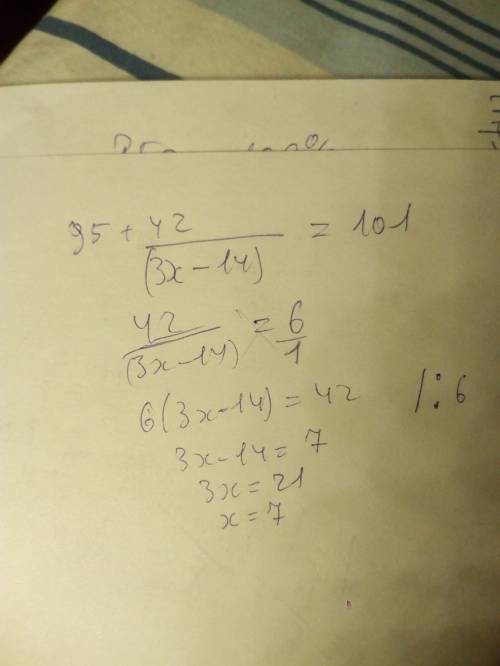 95 + 42 / (3x - 14) = 101
42 / (3x - 14) = 6 / 1
6(3x - 14) = 42 /:6
3x - 14 = 7
3x = 21
x = 7